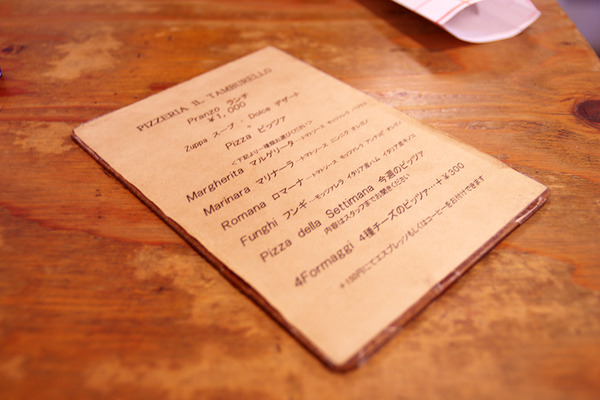 PIZZERIA IL TAMBURELLO
Pranzo ランチ
￥1,000
Zuppa スープ・Dolce デザート
+
Pizza ピッツァ
<下記より一種類お選びください>
Margherita マルゲリータ…トマトソース モッツァレラ バジリコ
Marinara マリナーラ…トマトソース ニンニク オレガノ
Romana ロマーナ…トマトソース モッツァレラ アンチョビ オレガノ
Funghi フンギ…モッツァレラ イタリア産ハム イタリア産キノコ
Pizza della Settimana 今週のピッツァ
内容はスタッフまでお聞きください
4Formaggi 4種チーズのピッツァ…+￥300
+150円にてエスプレッソもしくはコーヒーをお付けできます